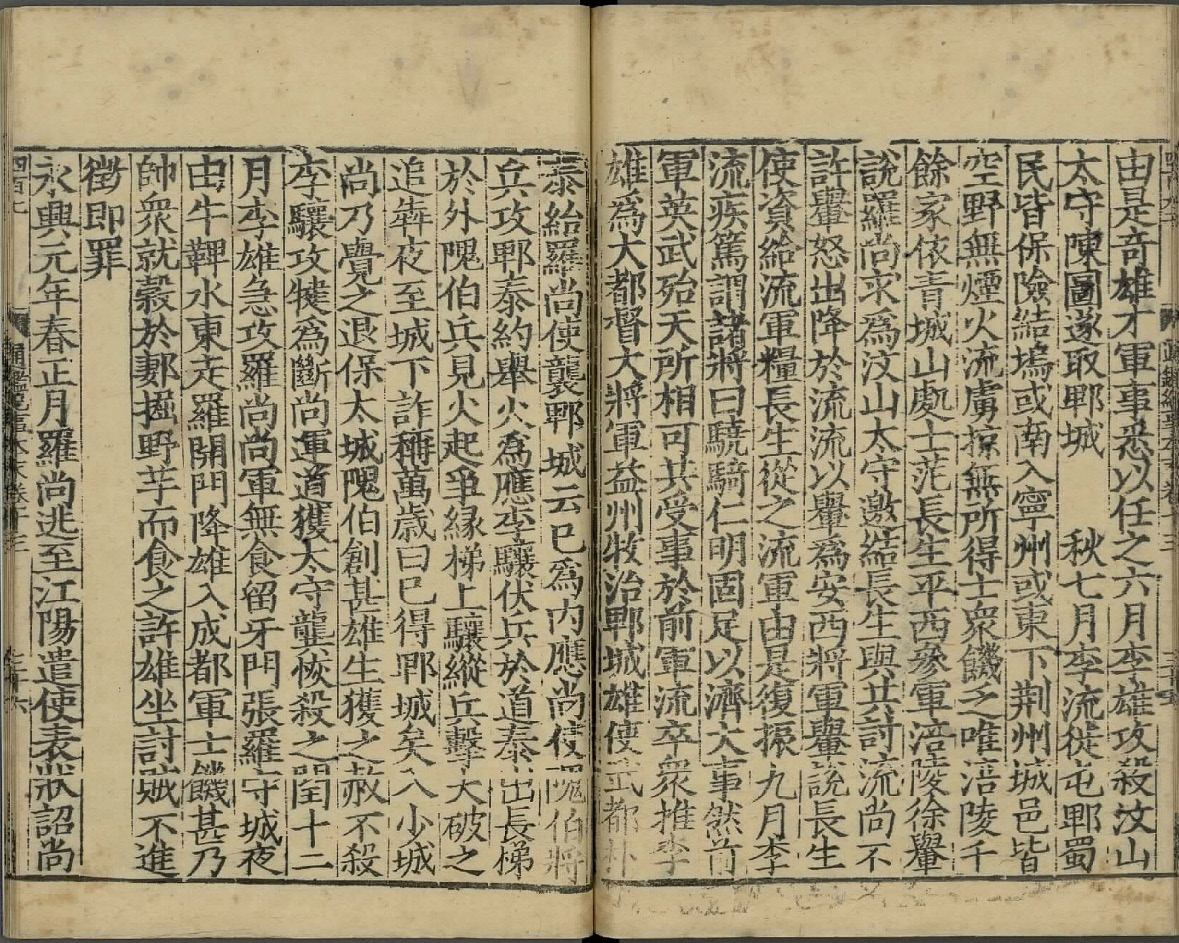 由是奇雄才軍事悉以任之六月李雄攻殺汶山
太守陳圖遂取郫城　秋七月李流徙屯郫蜀
民皆保險結塢或南入寧州或東下荆州城邑皆
空野無煙火流虜掠無所得士衆饑乏唯涪陵千
餘家依青城山處士范長生平西參軍涪陵徐轝
說羅尚求爲汶山太守邀結長生與共討流尚不
許轝怒出降於流流以轝爲安西將軍轝說長生
使資給流軍糧長生從之流軍由是復振　九月李
流疾篤謂諸將曰驍騎仁明固足以濟大事然前
軍英武殆天所相可共受事於前軍流卒衆推李
雄爲大都督大將軍益州牧治郫城雄使武都朴
泰紿羅尚使襲郫城云已爲内應尚使隗伯將
兵攻郫泰約舉火爲應李驤伏兵於道泰出長梯
於外隗伯兵見火起爭緣梯上驤縱兵擊大破之
追犇夜至城下詐稱萬歲曰已得郫城矣入少城
尚乃覺之退保太城隗伯創甚雄生獲之赦不殺
李驤攻犍爲斷尚運道獲太守龔恢殺之閏十二
月李雄急攻羅尚尚軍無食留牙門張羅守城夜
由牛鞞水東走羅開門降雄入成都軍士饑甚乃
帥衆就穀於郪掘野芋而食之許雄坐討賊不進
徵即罪
永興元年春正月羅尚逃至江陽遣使表狀詔尚